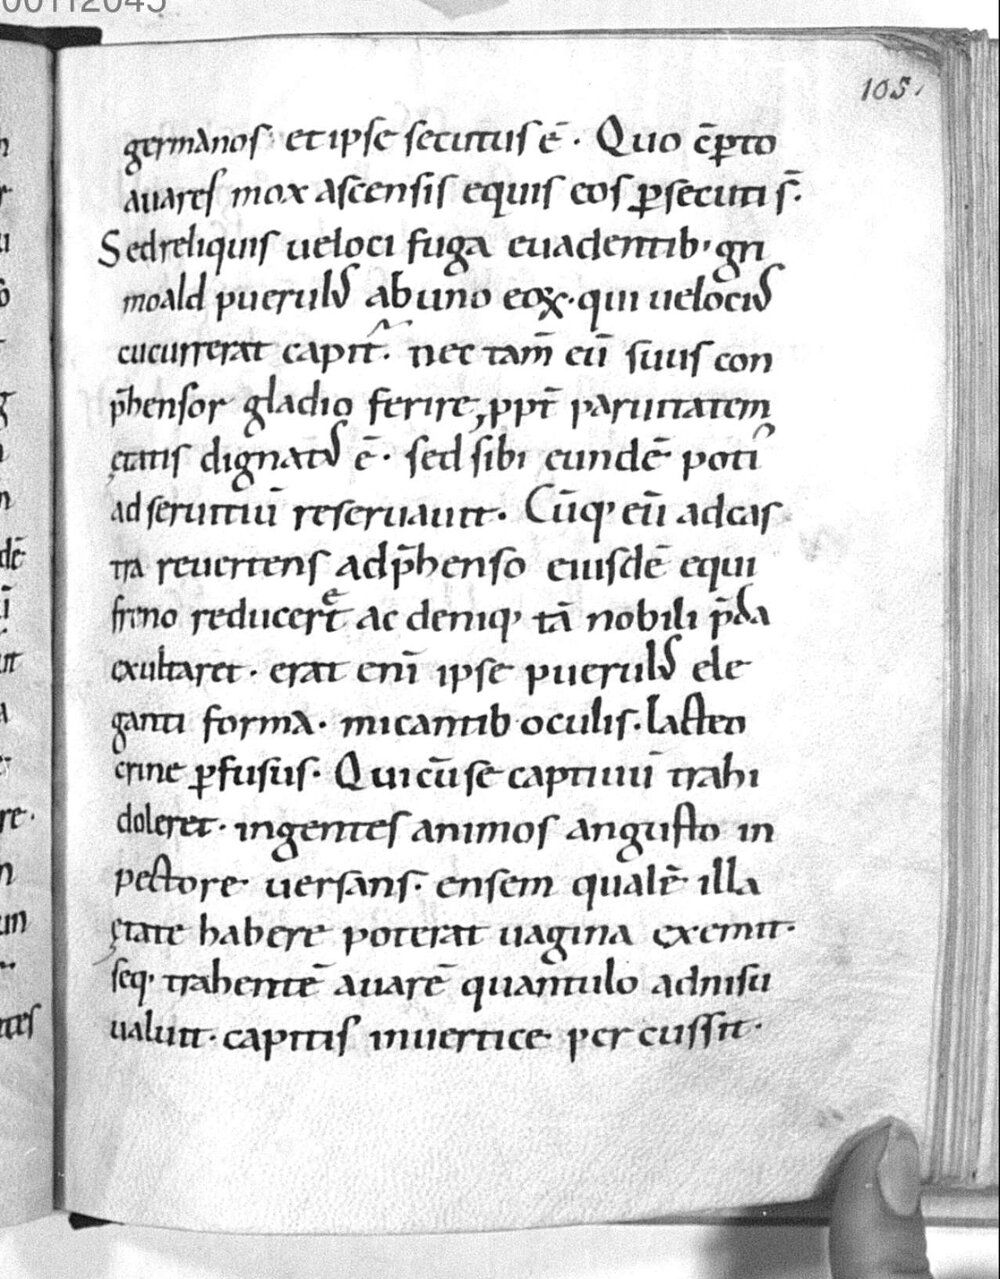 105.
germanos· et ipse secutus ē· Quo c̄p̄to
auares mox ascensis equis eos ꝑsecuti s̄·
Sed reliquis ueloci fuga euadentib; gri
moald puerulus ab uno eoꝝ· qui uelocius
cucurrerat capit̄· nec tam̄ eū suus con
p̄hensor gladio ferire, ꝓpt̄ paruitatem
ętatis dignatus ē· sed sibi eundē poti
ad seruitiū reseruauit· Cūq; eū ad cas
tra reuertens adp̄henso eiusdē equi
freno reduceret̄ ac deniq; tā nobili p̄da
exultaret· erat enī ipse puerulus ele
ganti forma· micantib oculis· lacteo
crine ꝑfusus· Qui cū se captiuū trahi
doleret· ingentes animos angusto in
pectore uersans· ensem qualē illa
ętate habere poterat uagina exemit·
seq; trahentē auarē quantulo adnisu
ualuit· capitis in uertice percussit·